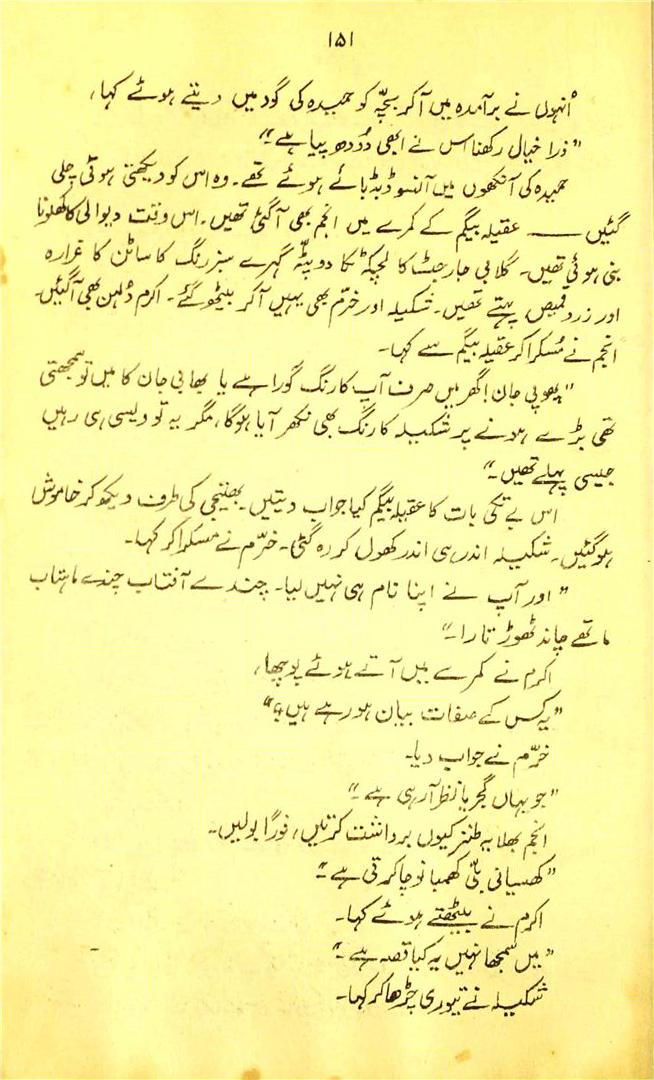 ۱۵۱
اُنہوں نے برآمدہ میں آکر بچّہ کو حمیدہ کی گود میں دیتے ہوئے کہا،
"ذرا خیال رکھنا اس نے ابھی دُودھ پیا ہے۔"
حمیدہ کی آنکھوں میں آنسو ڈبڈبائے ہوئے تھے۔ وہ اس کو دیکھتی ہوئی چلی
گئیں —— عقیلہ بیگم کے کمرے میں انجم بھی آگئی تھیں۔ اس وقت دیوالی کا کھلونا
بنی ہوئی تھیں۔ گلابی جارجٹ کا لچکے کا دوپٹّہ گہرے سبز رنگ کا ساٹن کا غرارہ
اور زرد قمیص پہنے تھیں۔ شکیلہ اور خرّم بھی یہیں آکر بیٹھ گئے۔ اکرم دُلہن بھی آگئیں۔
انجم نے مُسکرا کر عقیلہ بیگم سے کہا۔
"پھوپی جان! گھر میں صرف آپ کا رنگ گورا ہے یا بھابی جان کا میں تو سمجھتی
تھی بڑے ہونے پر شکیلہ کا رنگ بھی نکھر آیا ہوگا، مگر یہ تو ویسی ہی رہیں
جیسی پہلے تھیں۔"
اس بے تکی بات کا عقیلہ بیگم کیا جواب دیتیں۔ بھتیجی کی طرف دیکھ کر خاموش
ہوگئیں۔ شکیلہ اندر ہی اندر کھول کر رہ گئی۔ خرّم نے مسکرا کر کہا۔
"اور آپ نے اپنا نام ہی نہیں لیا۔ چندے آفتاب چندے ماہتاب
ماتھے چاند ٹھوڑ تارا۔"
اکرم نے کمرے میں آتے ہوئے پوچھا،
"یہ کس کے صفات بیان ہو رہے ہیں؟"
خرّم نے جواب دیا۔
"جو یہاں گجریا نظر آرہی ہے۔"
انجم بھلا یہ طنز کیوں برداشت کرتیں، فوراً بولیں۔
"کھسیانی بلّی کھمبا نوچا کرتی ہے۔"
اکرم نے بیٹھتے ہوئے کہا۔
"میں سمجھا نہیں یہ کیا قصہ ہے۔"
شکیلہ نے تیوری چڑھا کر کہا۔